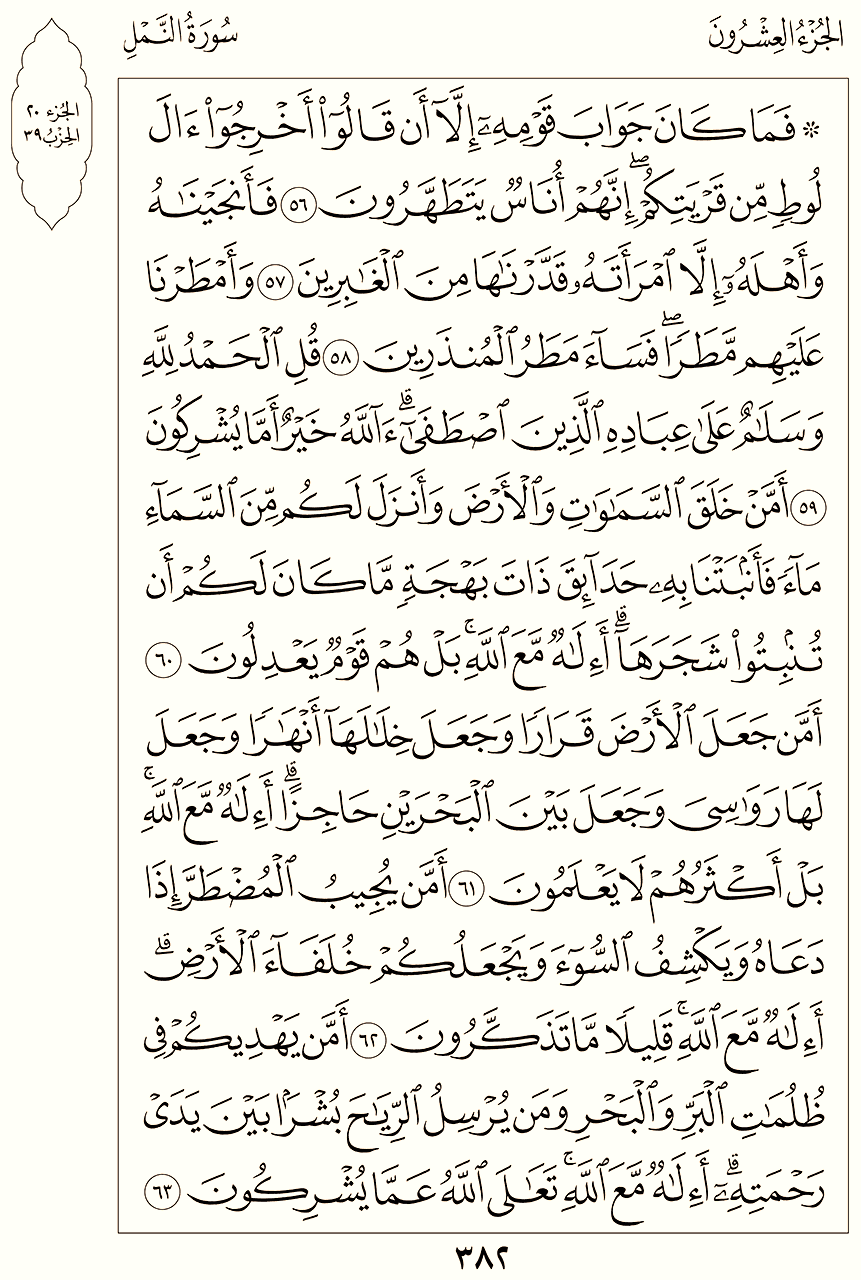 الجُزْءُ العِشْرُونَ
سُورَةُ النَّمْلِ
الجُزء ٢٠
الحِزْبُ ٣٩
۞ فَمَا كَانَ جَوَابَ قَوْمِهِۦٓ إِلَّآ أَن قَالُوٓا۟ أَخْرِجُوٓا۟ ءَالَ
لُوطٍ مِّن قَرْيَتِكُمْ ۖ إِنَّهُمْ أُنَاسٌ يَتَطَهَّرُونَ ٥٦ فَأَنجَيْنَـٰهُ
وَأَهْلَهُۥٓ إِلَّا ٱمْرَأَتَهُۥ قَدَّرْنَـٰهَا مِنَ ٱلْغَـٰبِرِينَ ٥٧ وَأَمْطَرْنَا
عَلَيْهِم مَّطَرًا ۖ فَسَآءَ مَطَرُ ٱلْمُنذَرِينَ ٥٨ قُلِ ٱلْحَمْدُ لِلَّهِ
وَسَلَـٰمٌ عَلَىٰ عِبَادِهِ ٱلَّذِينَ ٱصْطَفَىٰٓ ۗ ءَآللَّهُ خَيْرٌ أَمَّا يُشْرِكُونَ
٥٩ أَمَّنْ خَلَقَ ٱلسَّمَـٰوَٰتِ وَٱلْأَرْضَ وَأَنزَلَ لَكُم مِّنَ ٱلسَّمَآءِ
مَآءً فَأَنۢبَتْنَا بِهِۦ حَدَآئِقَ ذَاتَ بَهْجَةٍ مَّا كَانَ لَكُمْ أَن
تُنۢبِتُوا۟ شَجَرَهَآ ۗ أَءِلَـٰهٌ مَّعَ ٱللَّهِ ۚ بَلْ هُمْ قَوْمٌ يَعْدِلُونَ ٦٠
أَمَّن جَعَلَ ٱلْأَرْضَ قَرَارًا وَجَعَلَ خِلَـٰلَهَآ أَنْهَـٰرًا وَجَعَلَ
لَهَا رَوَٰسِىَ وَجَعَلَ بَيْنَ ٱلْبَحْرَيْنِ حَاجِزًا ۗ أَءِلَـٰهٌ مَّعَ ٱللَّهِ ۚ
بَلْ أَكْثَرُهُمْ لَا يَعْلَمُونَ ٦١ أَمَّن يُجِيبُ ٱلْمُضْطَرَّ إِذَا
دَعَاهُ وَيَكْشِفُ ٱلسُّوٓءَ وَيَجْعَلُكُمْ خُلَفَآءَ ٱلْأَرْضِ ۗ
أَءِلَـٰهٌ مَّعَ ٱللَّهِ ۚ قَلِيلًا مَّا تَذَكَّرُونَ ٦٢ أَمَّن يَهْدِيكُمْ فِى
ظُلُمَـٰتِ ٱلْبَرِّ وَٱلْبَحْرِ وَمَن يُرْسِلُ ٱلرِّيَـٰحَ بُشْرًۢا بَيْنَ يَدَىْ
رَحْمَتِهِۦٓ ۗ أَءِلَـٰهٌ مَّعَ ٱللَّهِ ۚ تَعَـٰلَى ٱللَّهُ عَمَّا يُشْرِكُونَ ٦٣
٣٨٢